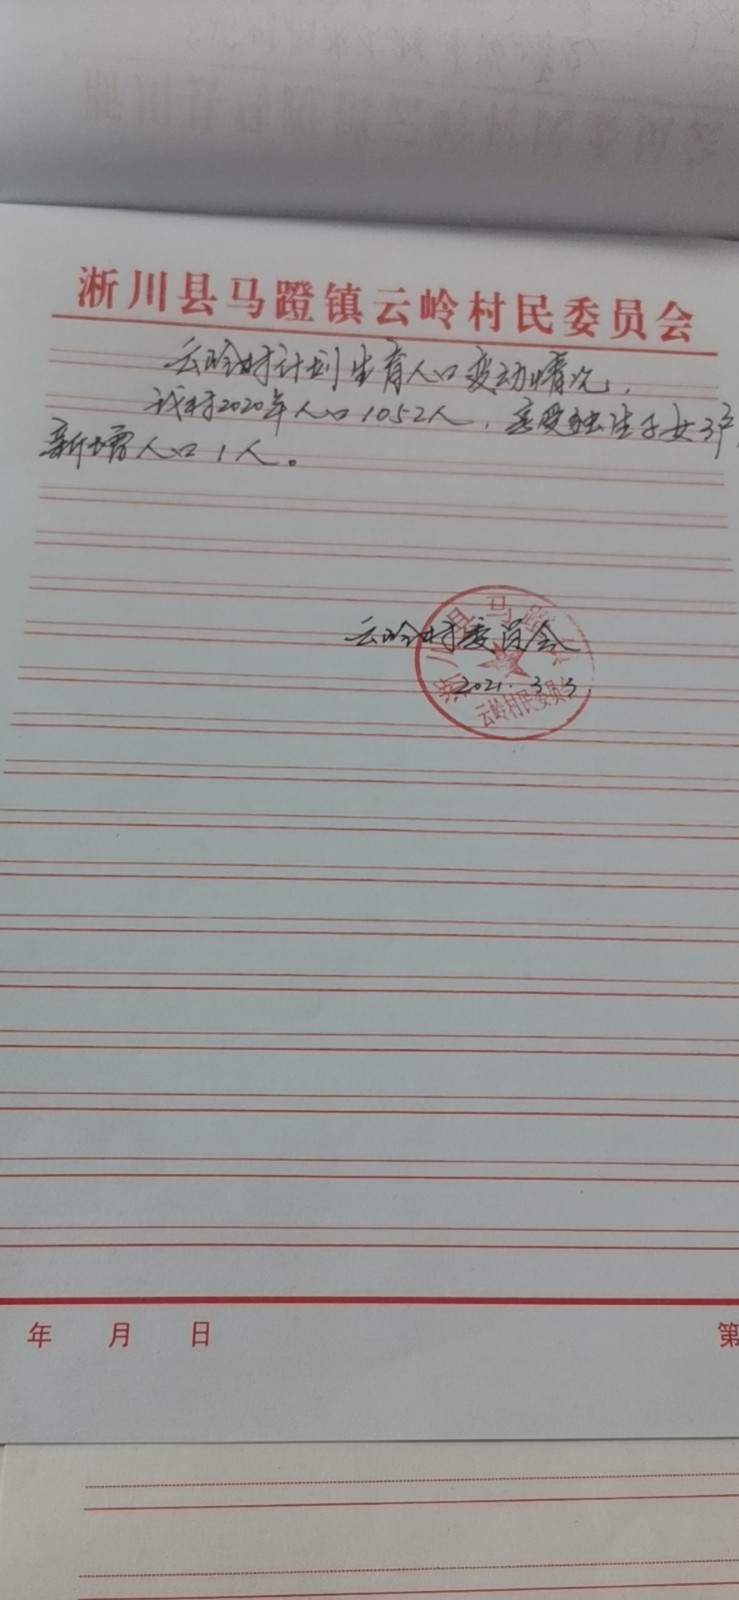 淅川县马蹬镇云岭村民委员会
云岭村计划生育人口变动情况
我村2020年人口1052人，享受独生子女3户，
新增人口1人。
云岭村委员会
2021.3.3
淅川县马蹬
云岭村民委员会
年 月 日
第